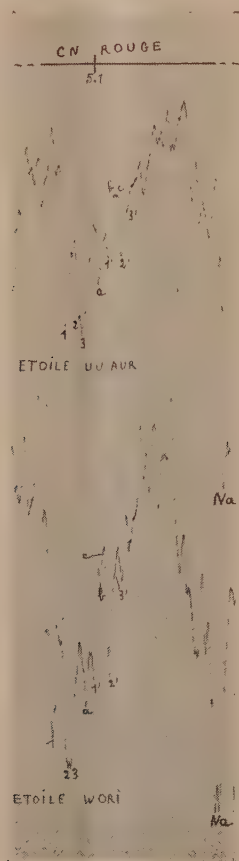 CN ROUGE
5.1
3'
1' 2'
a
1 2
3
ETOILE UU AUR
Na
c
b 3'
1' 2'
a
2 3
ETOILE W ORI
Na